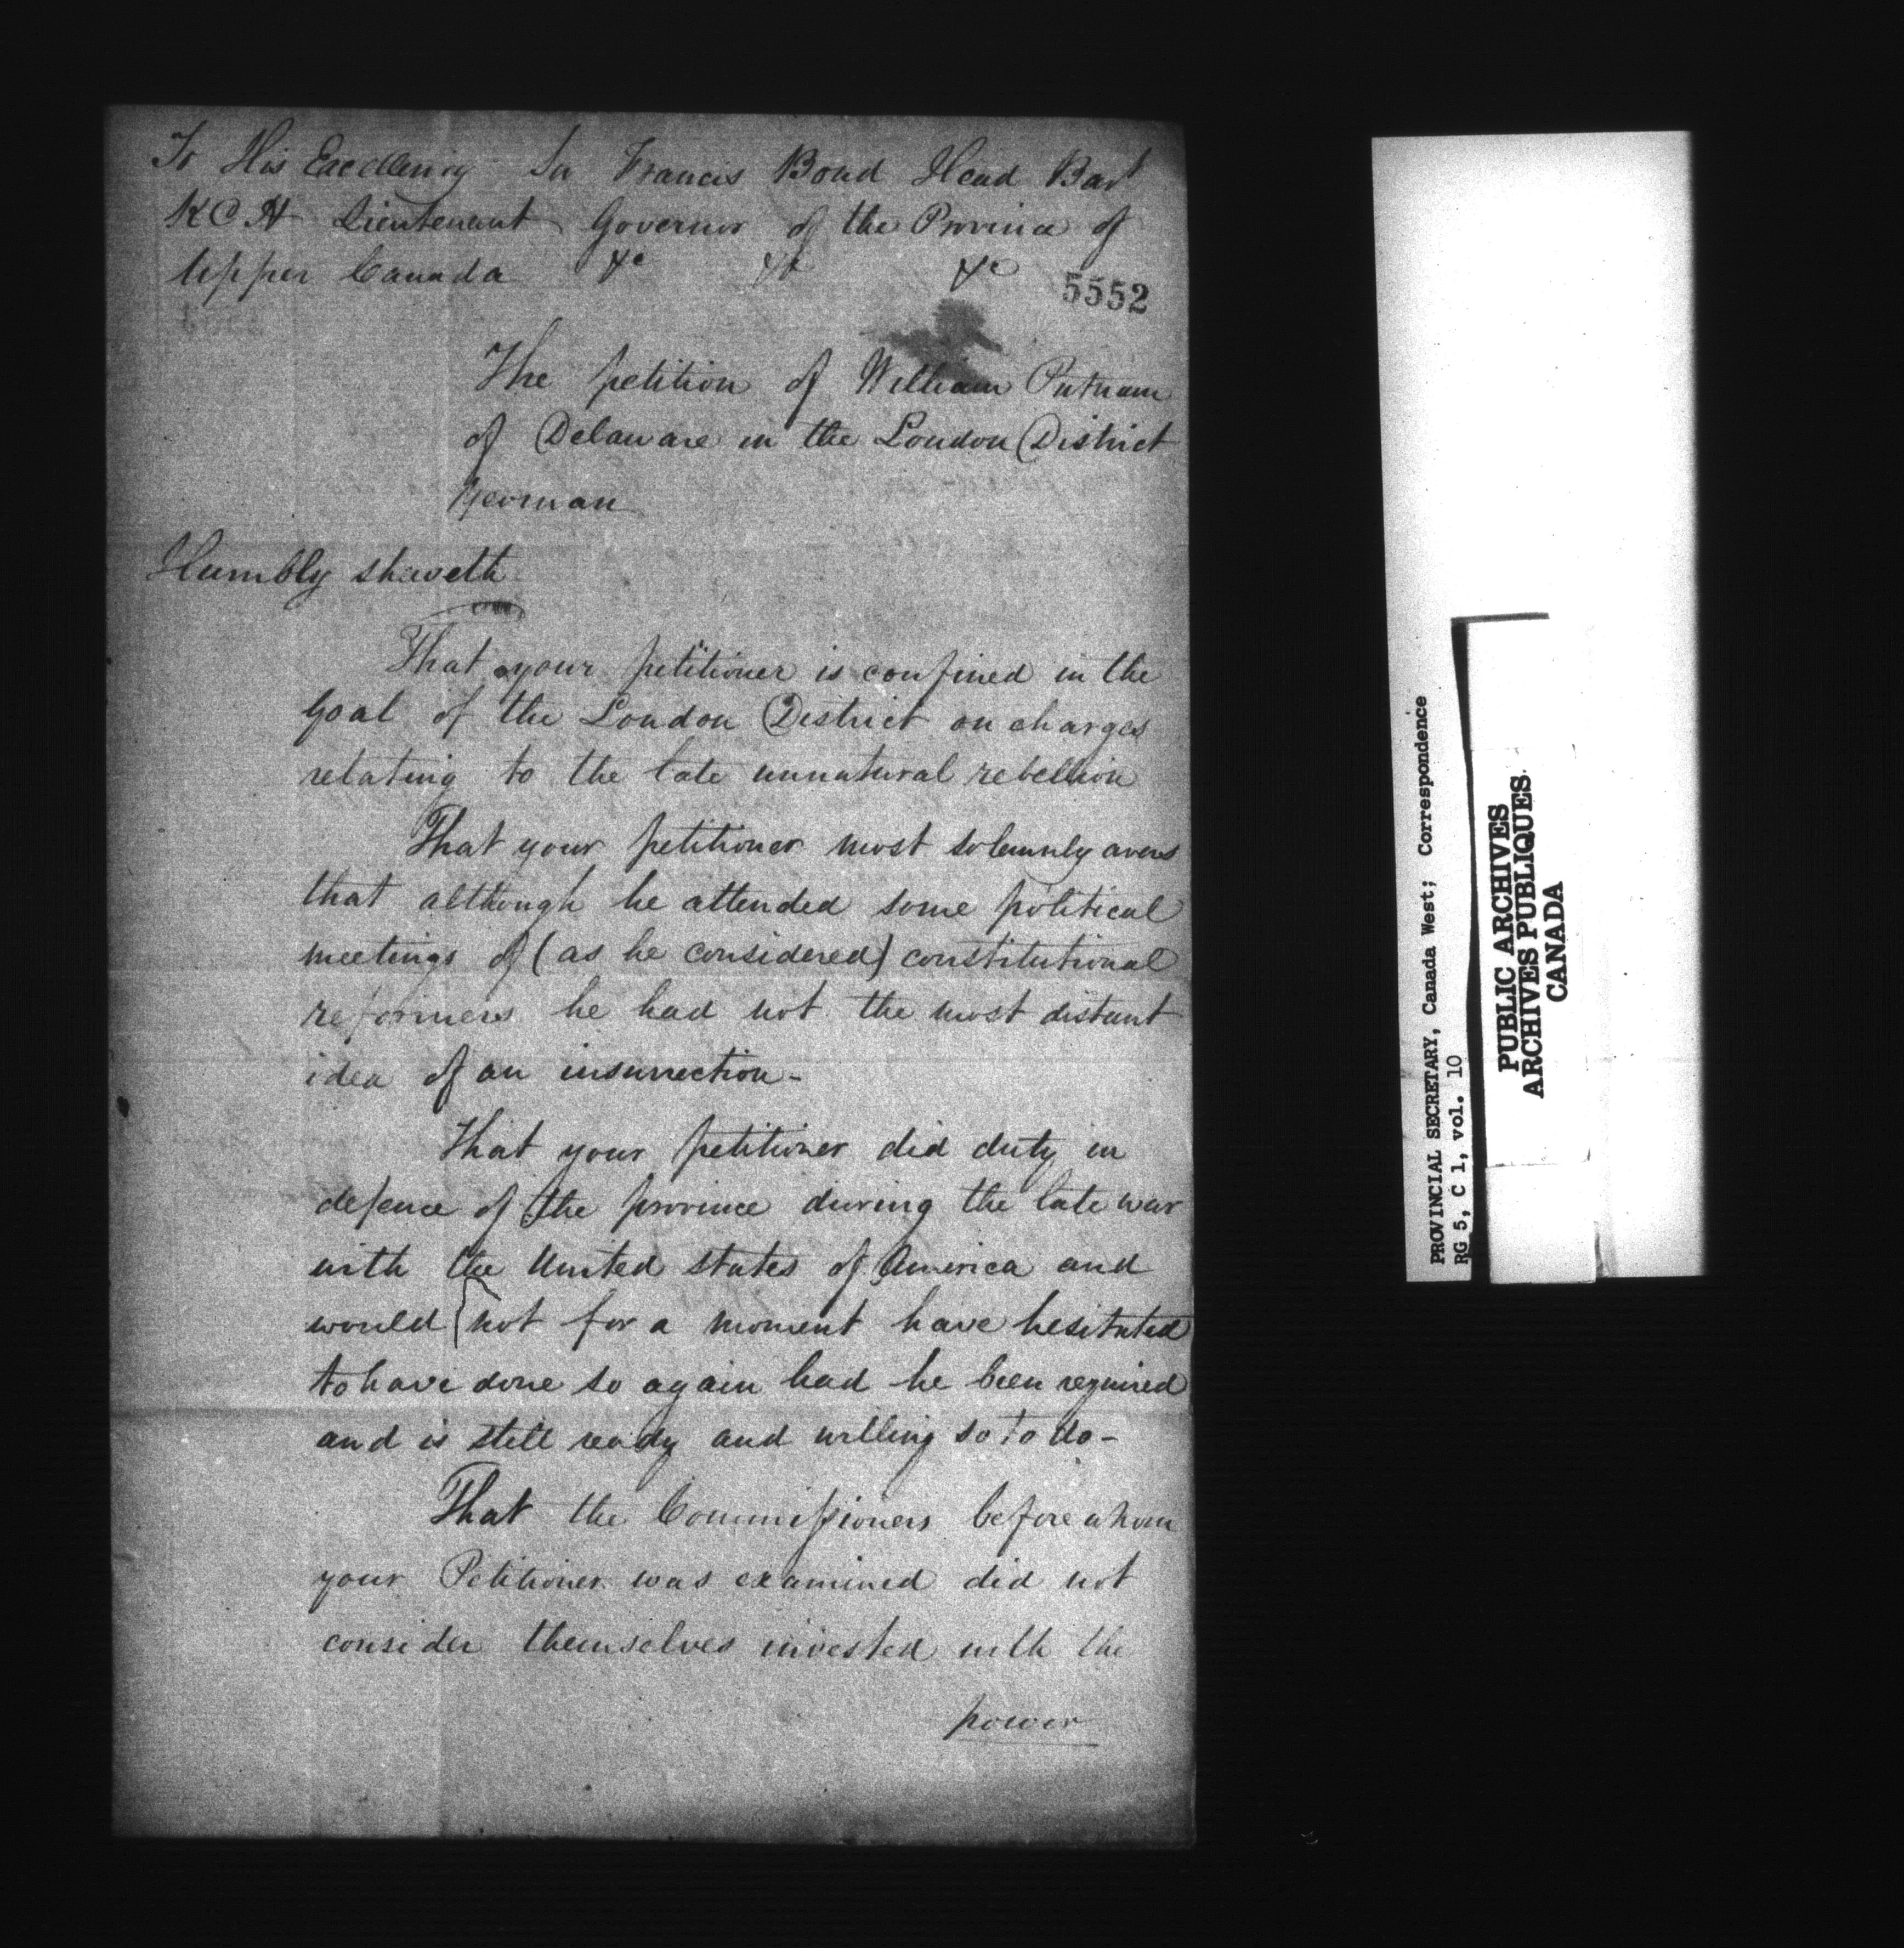 To His Excellency Sir Francis Bond Head Bart
KCH Lieutenant Governor of the Province of
Upper Canada &c &c &c
5552
The petition of William Putnam
of Delaware in the London District
Yeoman
Humbly sheweth
That your petitioner is confined in the
Goal of the London District on charges
relating to the late unnatural rebellion
That your petitioner most solemnly avers
that although he attended some political
meetings of (as he considered) constitutional
reformers he had not the most distant
idea of an insurrection-
That your petitioner did duty in
defence of the province during the late war
with the United states of America and
would not for a moment have hesitated
to have done so again had he been required
and is still ready and willing so to do-
That the Commissioners before whom
your Petitioner was examined did not
consider themselves invested with the
power
PROVINCIAL SECRETARY, Canada West; Correspondence
RG 5, C 1, vol. 10
PUBLIC ARCHIVES
ARCHIVES PUBLIQUES
CANADA